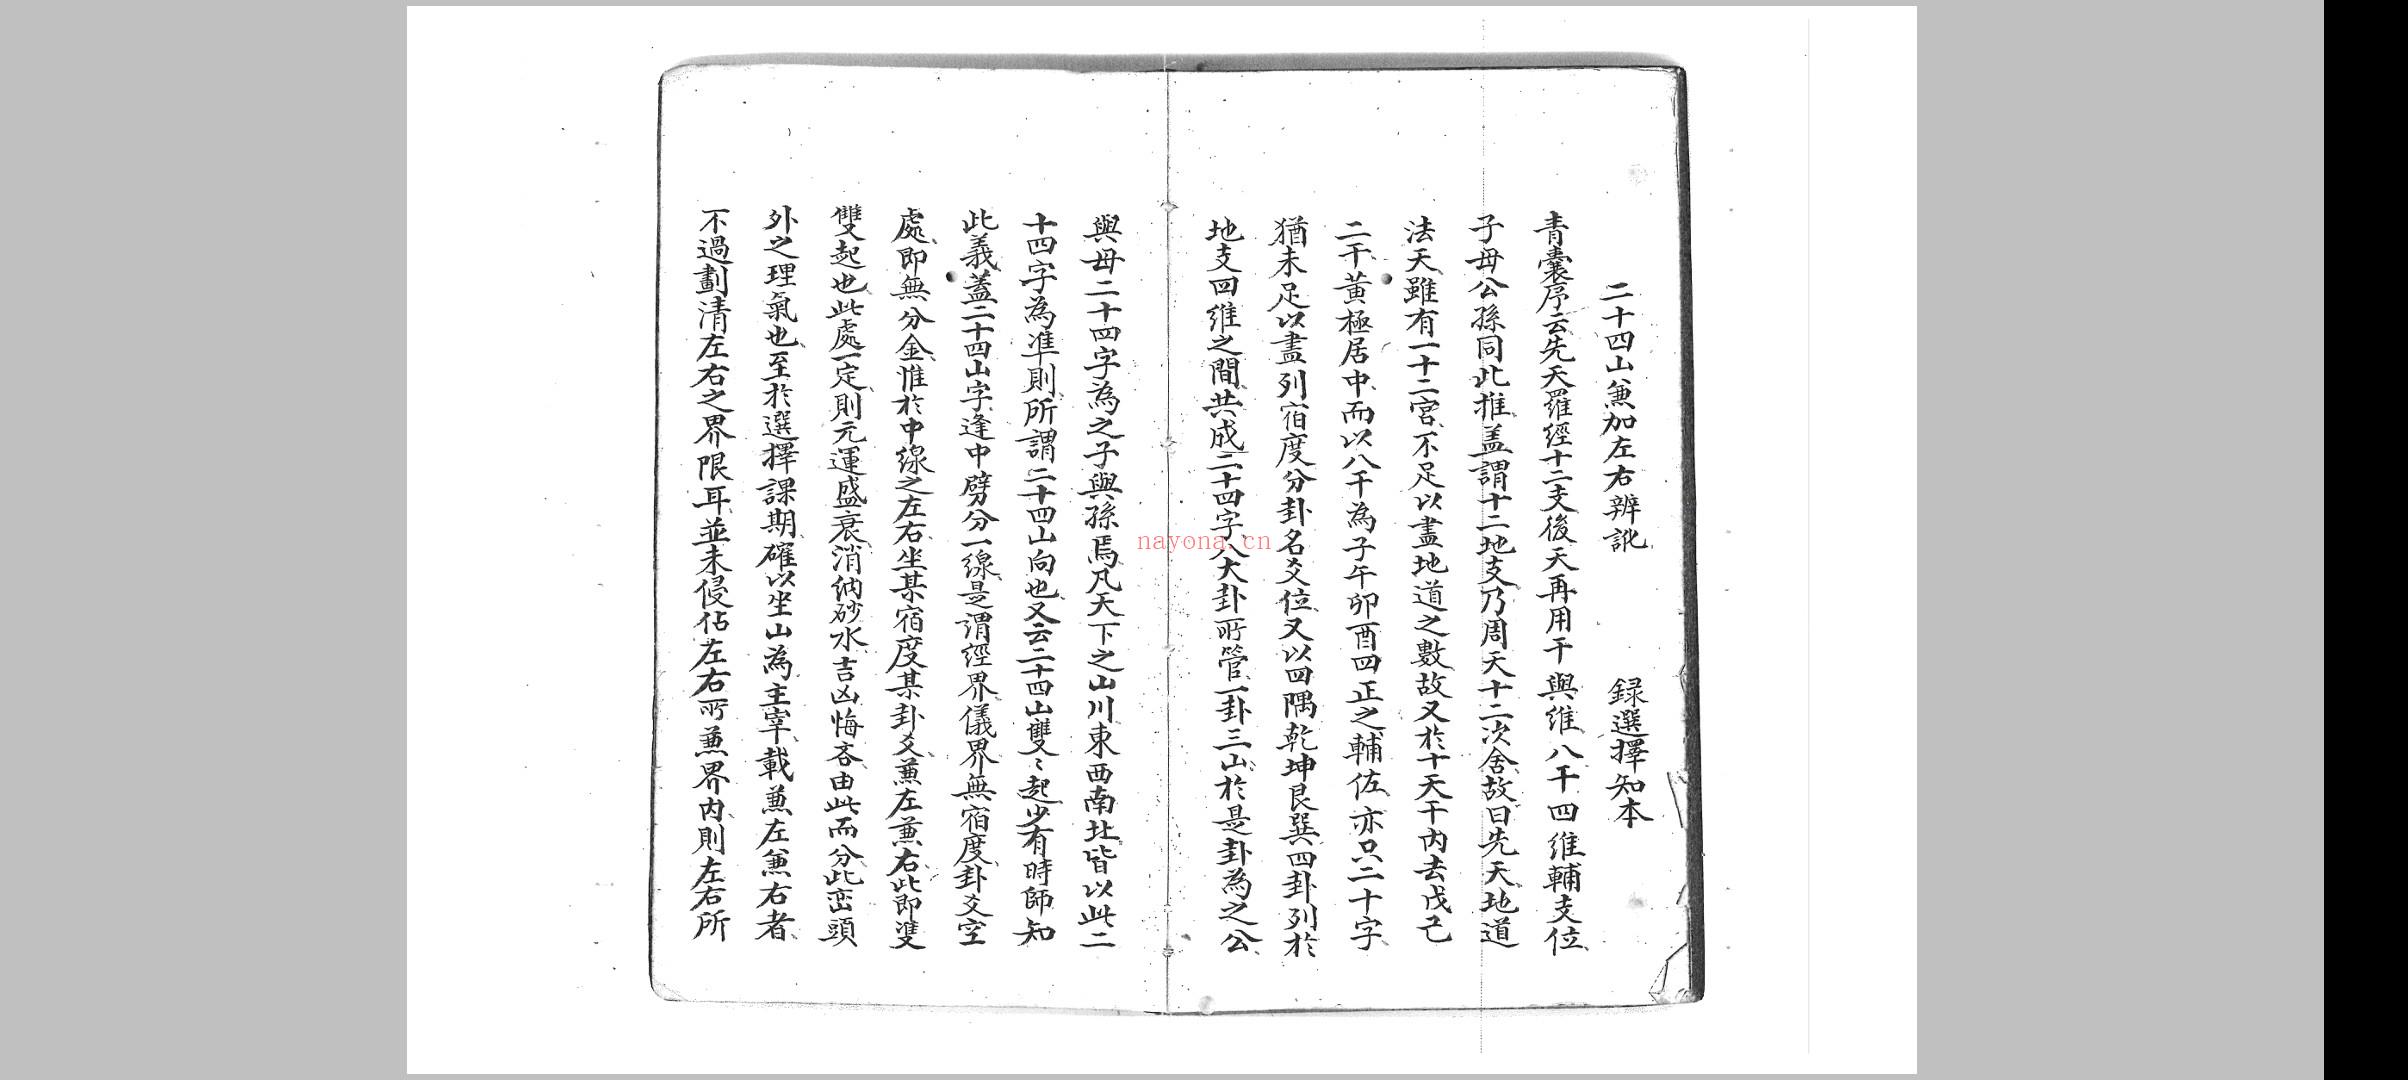 二十四山兼加左右辨訛 録選擇知本
青囊序云先天羅經十二支後天再用干與維八干四維輔支位
子母公孫同此推盖謂十二地支乃周天十二次舍故曰先天地道
法天雖有一十二宮不足以盡地道之數故又於十天干內去戊己
二干黃極居中而以八干為子午卯酉四正之輔佐亦只二十字
猶未足以盡列宿度分卦名爻位又以四隅乾坤艮巽四卦列於
地支四維之間共成二十四字八大卦所管一卦三山於是卦為之公
與母二十四字為之子與孫焉凡天下之山川東西南北皆以此二
十四字為準則所謂二十四山向也又云二十四山雙〻起少有時師知
此義蓋二十四山字逢中劈分一線是謂經界儀界無宿度卦爻空
處即無分金惟於中線之左右坐某宿度某卦爻兼左兼右此即雙
雙起也此處一定則元運盛衰消納砂水吉凶悔吝由此而分此巒頭
外之理氣也至於選擇課期確以坐山為主宰載兼左兼右者
不過劃清左右之界限耳並未侵佔左右所兼界內則左右所
nayona.cn